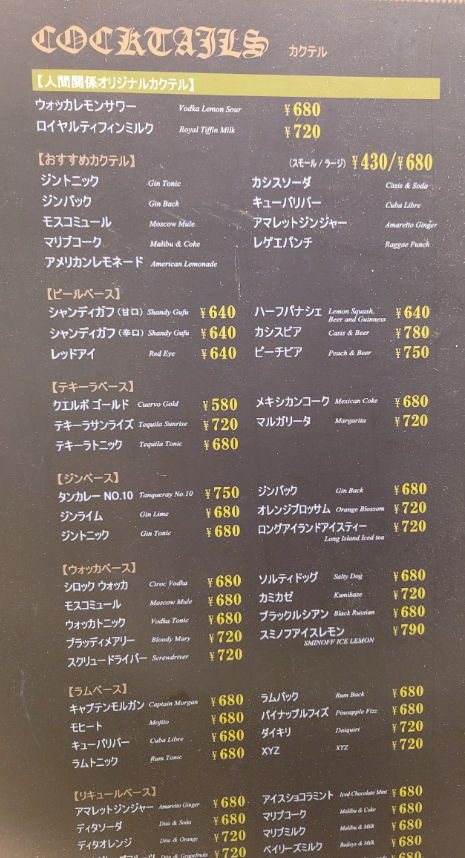 COCKTAILS カクテル
【人間関係オリジナルカクテル】
ウォッカレモンサワー Vodka Lemon Sour ¥680
ロイヤルティフィンミルク Royal Tiffin Milk ¥720
【おすすめカクテル】 (スモール / ラージ) ¥430/¥680
ジントニック Gin Tonic カシスソーダ Casis & Soda
ジンバック Gin Back キューバリバー Cuba Libre
モスコミュール Moscow Mule アマレットジンジャー Amaretto Ginger
マリブコーク Malibu & Coke レゲエパンチ Raggae Punch
アメリカンレモネード American Lemonade
【ビールベース】
シャンディガフ (甘口) Shandy Gafu ¥640 ハーフパナシェ Lemon Squash, Beer and Guinness ¥640
シャンディガフ (辛口) Shandy Gafu ¥640 カシスビア Casis & Beer ¥780
レッドアイ Red Eye ¥640 ピーチビア Peach & Beer ¥750
【テキーラベース】
クエルボ ゴールド Cuervo Gold ¥580 メキシカンコーク Mexican Coke ¥680
テキーラサンライズ Tequila Sunrise ¥720 マルガリータ Margarita ¥720
テキーラトニック Tequila Tonic ¥680
【ジンベース】
タンカレー NO.10 Tanqueray No.10 ¥750 ジンバック Gin Back ¥680
ジンライム Gin Lime ¥680 オレンジブロッサム Orange Blossom ¥720
ジントニック Gin Tonic ¥680 ロングアイランドアイスティー Long Island Iced tea ¥720
【ウォッカベース】
シロック ウォッカ Ciroc Vodka ¥680 ソルティドッグ Salty Dog ¥680
モスコミュール Moscow Mule ¥680 カミカゼ Kamikaze ¥720
ウォッカトニック Vodka Tonic ¥680 ブラックルシアン Black Russian ¥680
ブラッディメアリー Bloody Mary ¥720 スミノフアイスレモン SMINOFF ICE LEMON ¥790
スクリュードライバー Screwdriver ¥720
【ラムベース】
キャプテンモルガン Captain Morgan ¥680 ラムバック Rum Back ¥680
モヒート Mojito ¥680 パイナップルフィズ Pineapple Fizz ¥680
キューバリバー Cuba Libre ¥680 ダイキリ Daiquiri ¥720
ラムトニック Rum Tonic ¥680 XYZ XYZ ¥720
【リキュールベース】
アマレットジンジャー Amaretto Ginger ¥680 アイスショコラミント Iced Chocolate Mint ¥680
ディタソーダ Dita & Soda ¥680 マリブコーク Malibu & Coke ¥680
ディタオレンジ Dita & Orange ¥720 マリブミルク Malibu & Milk ¥680
Dita & Grapefruits ¥720 ベイリーズミルク Baileys & Milk ¥680